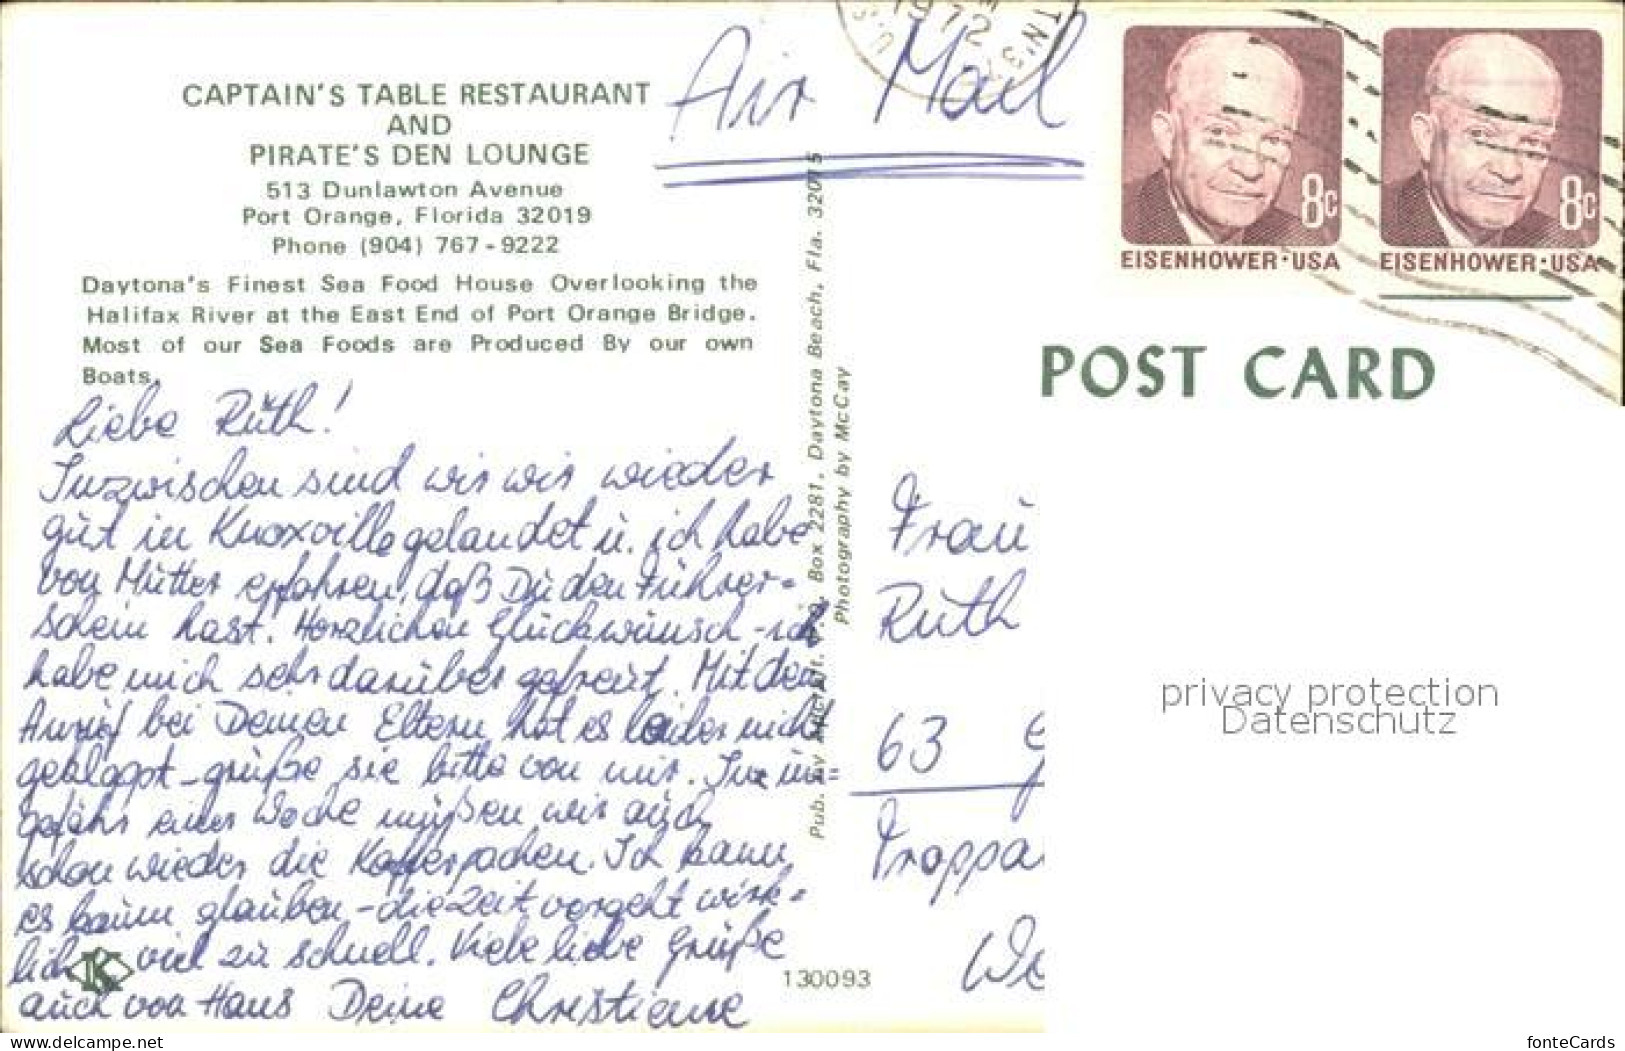 CAPTAIN'S TABLE RESTAURANT
AND
PIRATE'S DEN LOUNGE
513 Dunlawton Avenue
Port Orange, Florida 32019
Phone (904) 767-9222
Daytona's Finest Sea Food House Overlooking the
Halifax River at the East End of Port Orange Bridge.
Most of our Sea Foods are Produced By our own
Boats.
Liebe Ruth!
Inzwischen sind wir wir wieder
gut in Knoxville gelandet u. ich habe
von Mutter erfahren, daß Du den Führer=
schein hast. Herzlichen Glückwunsch - ich
habe mich sehr darüber gefreut. Mit dem
Anruf bei Deinen Eltern hat es leider nicht
geklappt - grüße sie bitte von mir. In un=
gefähr einer Woche müßen wir auch
schon wieder die Koffer packen. Ich kann
es kaum glauben - die Zeit vergeht wirk=
lich viel zu schnell. Viele liebe Grüße
auch von Hans Deine Christiane
130093
Pub. by P.O. Box 2281, Daytona Beach, Fla. 32015
Photography by McCay
Air Mail
1972
TN 37
U.S
8c
EISENHOWER·USA
8c
EISENHOWER·USA
POST CARD
Frau
Ruth
63 G
Troppa
We
privacy protection
Datenschutz
akpool.de
fonteCards